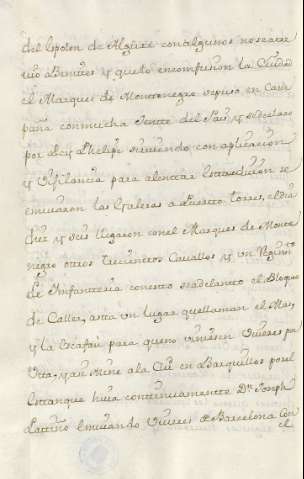 del lepolon de Alguer con algunos no searre
vio Benites y luego
el Marques de Montenegro sepuso en Cam
paña con mucha Jente del Pais, y sedeclaro
por Rey Phelipe sirviendo con aplicacion
y Vigilancia para alentar se
embiaron las Galeras a Puerto torres, el dia
diez y seis llegaron con el Marques de Monte
negro otros trecientos Cavallos y un Regim.to
de Infanteria con esto seadelanto el Bloqueo
de Caller, asta un lugar quellaman el Mas,
y la Escafa para queno viniesen viveres por
alla en Barquillos por el
Estanque continuamente Dn. Joseph
Patiño embiando Viveres de Barcelona con
el